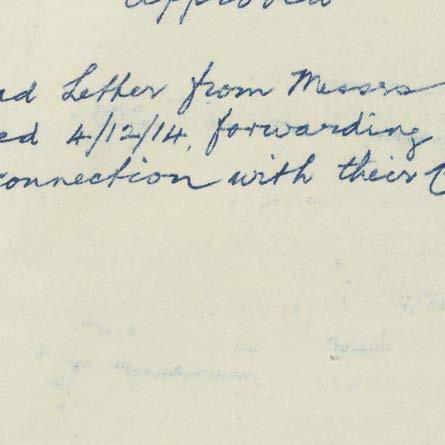 approved
ad Letter from Messrs
ed 4/12/14, forwarding
connection with their